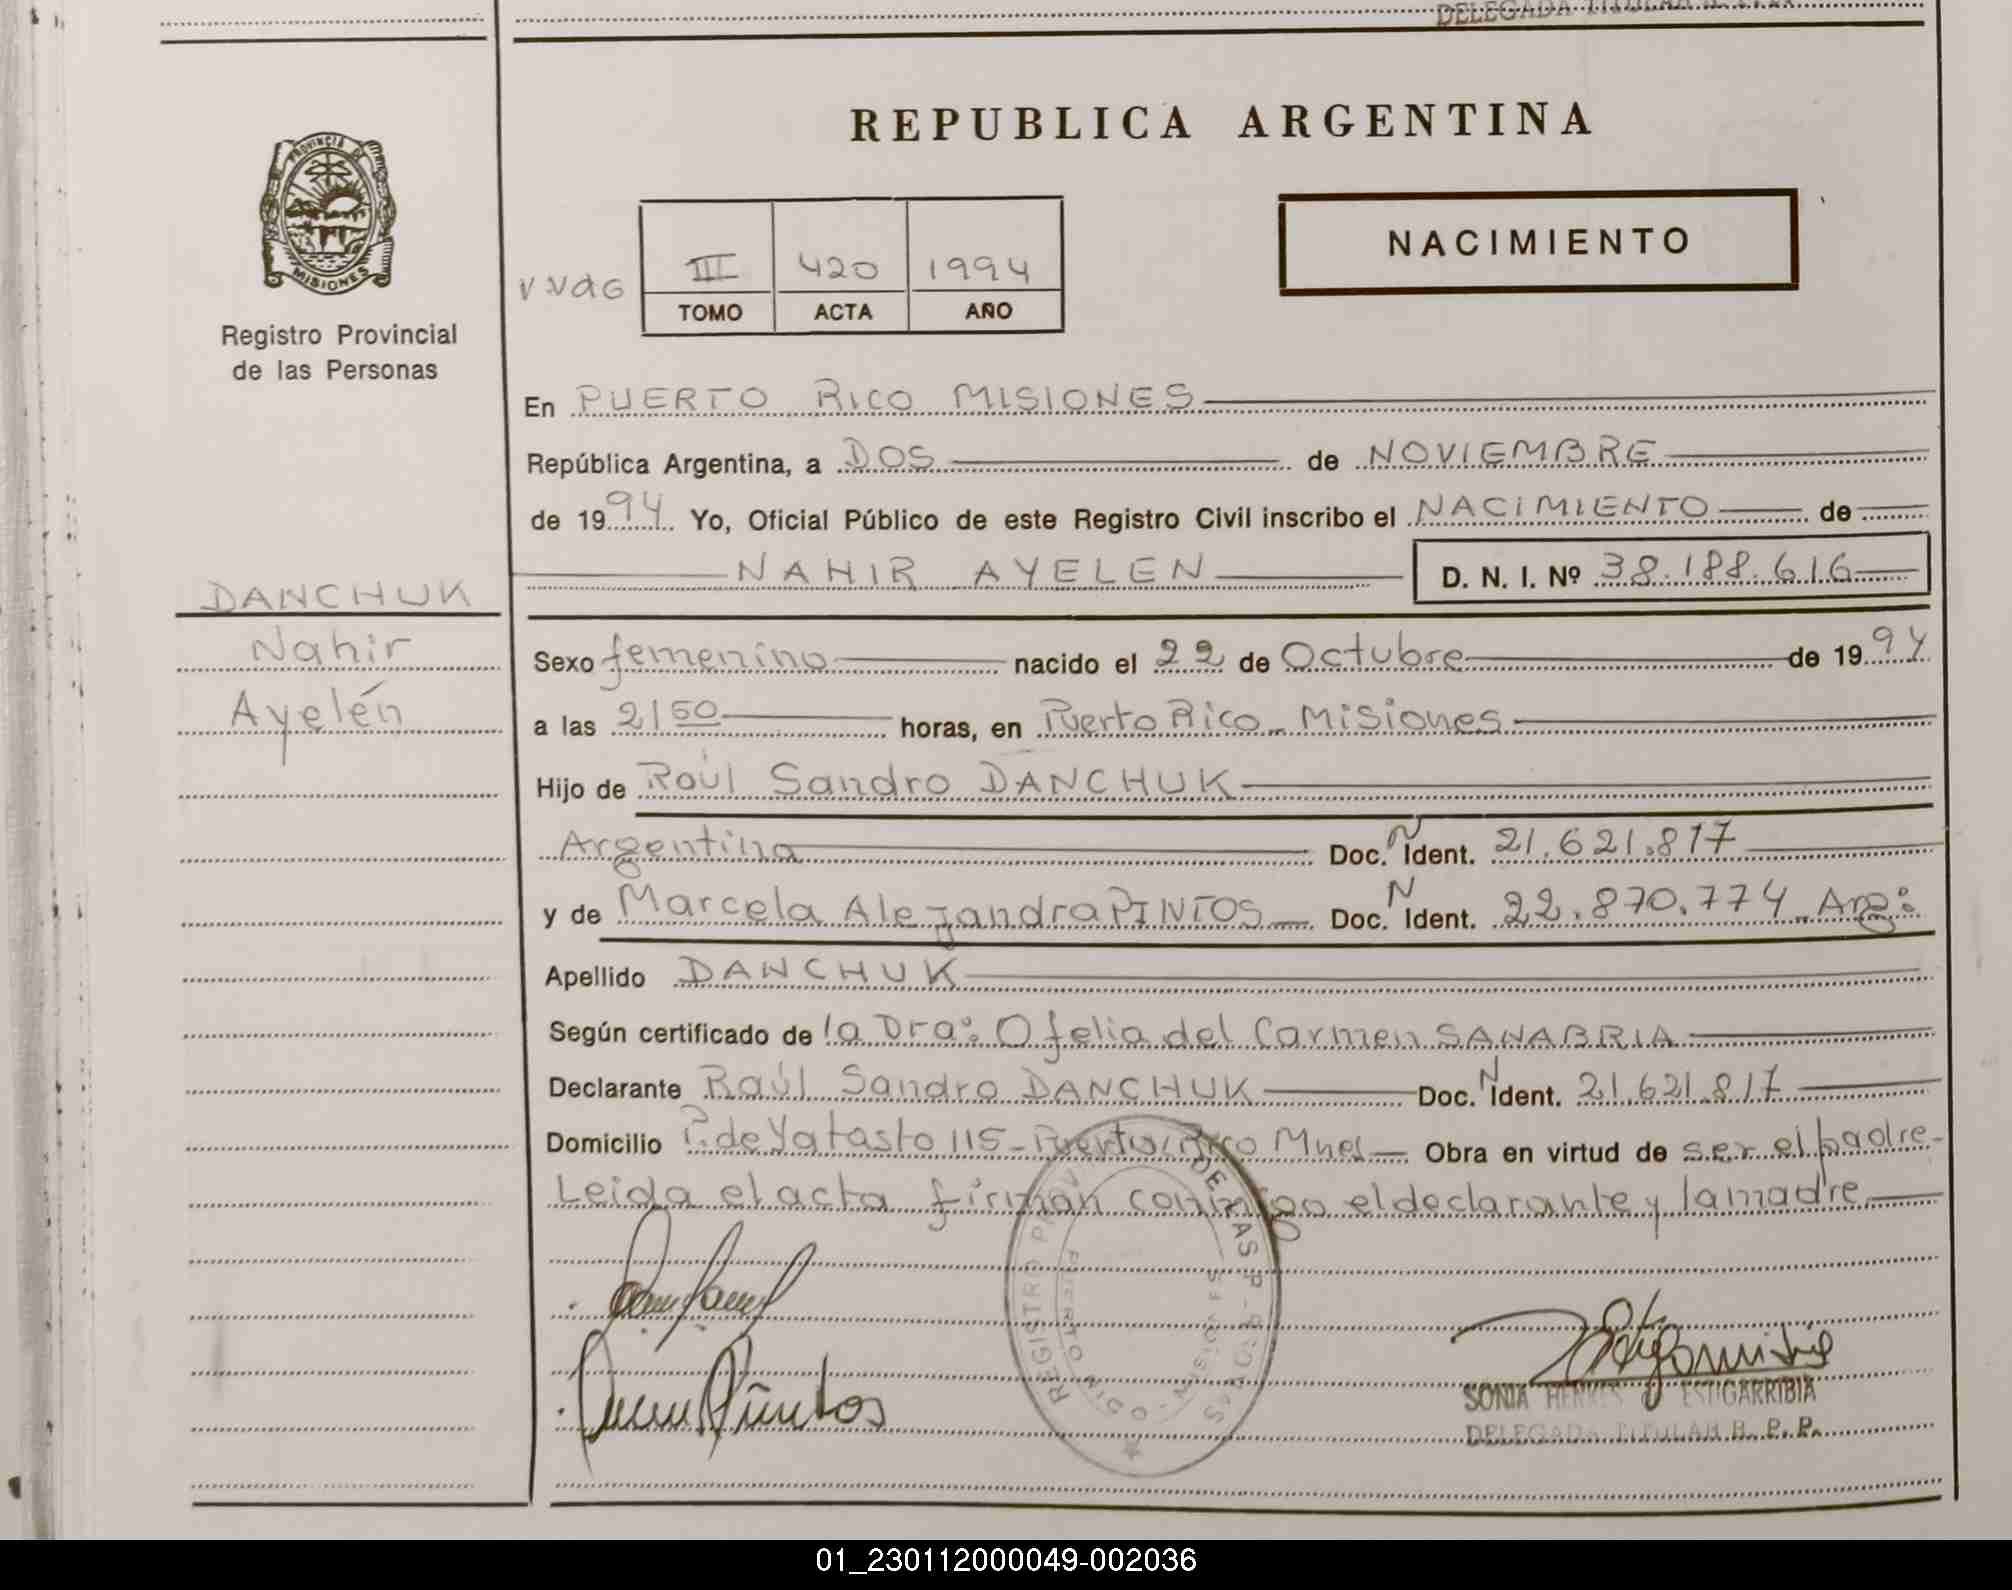 DELEGADA TITULAR R. P. P.
REPUBLICA ARGENTINA
PROVINCIA DE
MISIONES
Registro Provincial
de las Personas
NACIMIENTO
III 420 1994
TOMO ACTA AÑO
En PUERTO RICO MISIONES
República Argentina, a DOS de NOVIEMBRE
de 1994 Yo, Oficial Público de este Registro Civil inscribo el NACIMIENTO de
NAHIR AYELEN D. N. I. Nº 38.188.616
DANCHUK
Nahir
Ayelén
Sexo femenino nacido el 22 de Octubre de 1994
a las 2150 horas, en Puerto Rico - Misiones
Hijo de Raúl Sandro DANCHUK
Argentina Doc. N Ident. 21.621.817
y de Marcela Alejandra PINTOS Doc. N Ident. 22.870.774 Arg:
Apellido DANCHUK
Según certificado de la Dra: Ofelia del Carmen SANABRIA
Declarante Raúl Sandro DANCHUK Doc. N Ident. 21.621.817
Domicilio P. de Yatasto 115 - Puerto Rico Mnes Obra en virtud de ser el padre -
Leida el acta firman conmigo el declarante y la madre
REGISTRO PROV. DE LAS P
PUERTO RICO - MISIONES
SONIA ESTIGARRIBIA
DELEGADA TITULAR R. P. P.
01_230112000049-002036